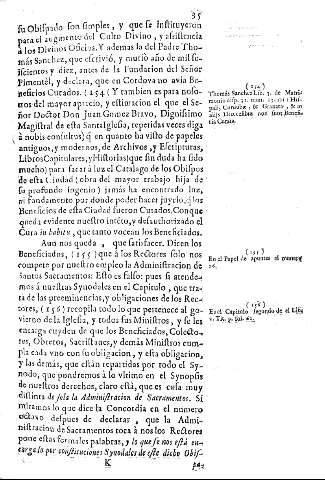 35
su Obispado son simples, y que se instituyeron
para el augmento del Culto Divino, y assistencia
à los Divinos Oficios. Y ademas la del Padre Tho-
más Sanchez, que escrivió, y murió año de mil se-
iscientos y diez, antes de la Fundacion del Señor
Pimentèl, y declara, que en Cordova no avia Be-
neficios Curados. (254) Y tambien es para noso-
tros del mayor aprecio, y estimacion el que el Se-
ñor Doctor Don Juan Gomez Bravo, Dignissimo
Magistral de esta Santa Iglesia, repetidas veces diga
à nobis consultus) q̃ en quanto ha visto de papeles
antiguos, y modernos, de Archivos, y Escripturas,
Libros Capitulares, y Historias (que sin duda ha sido
mucho) para sacar à luz el Catalogo de los Obispos
de esta Ciudad (obra del mayor trabajo hija de
su profundo ingenio) jamás ha encontrado luz,
ni fundamento por donde poder hacer juycio, q̃ los
Beneficios de esta Ciudad fueron Curados. Con que
queda evidente nuestro intèto, y desauthorizado el
Cura in habitu, que tanto vocean los Beneficiados.
Aun nos queda, que satisfacer. Dicen los
Beneficiados, (255) que à los Rectores solo nos
compete por nuestro empleo la Administracion de
Santos Sacramentos: Esto es falso: pues si atende-
mos à nuestras Synodales en el Capitulo, que tra-
ta de las preeminencias, y obligaciones de los Rec-
tores, (256) recopila todo lo que pertenece al go-
vierno de la Iglesia, y todos sus Ministros, y se les
encarga cuyden de que los Beneficiados, Colecto-
res, Obreros, Sacristanes, y demás Ministros cum-
pla cada uno con su obligacion, y esta obligacion,
y las demás, que están repartidas por todo el Sy-
nodo, que pondremos à lo ultimo en el Synopsis
de nuestros derechos, claro está, que es cosa muy
distinta de sola la Administracion de Sacramentos. Si
miramos lo que dice la Concordia en el numero
octavo despues de declarar, que la Admi-
nistracion de Sacramentos toca à nos los Rectores
pone estas formales palabras, y lo que se nos està en-
cargado por constituciones Synodales de este dicho Obis-
K
pa-
(254)
Thomás Sanchez Lib. 3. de Matri-
monio disp.
(255)
En el Papel de apuntes el
(256)
En el Capitulo segundo de el Libro